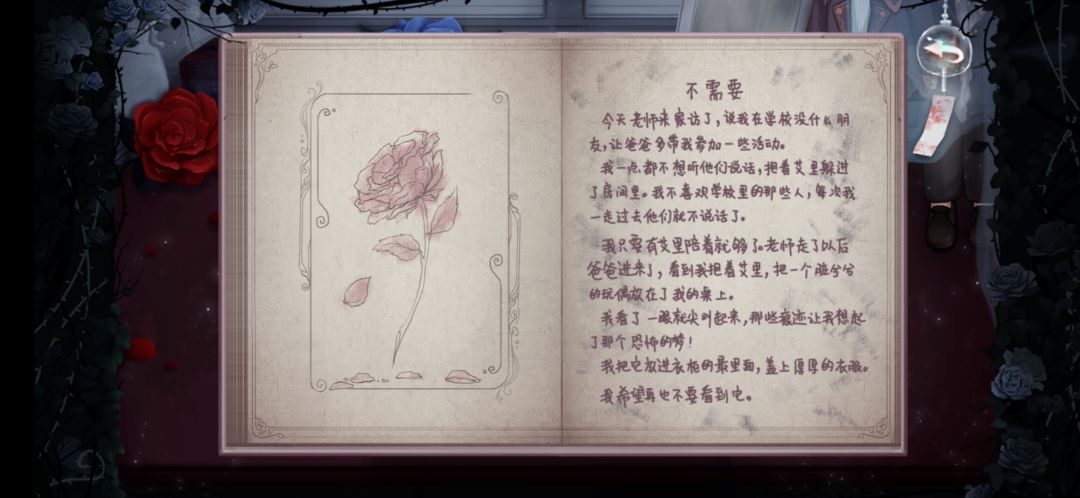 不需要
今天老师来家访了,说我在学校没什么朋
友,让爸爸多带我参加一些活动。
我一点都不想听他们说话,抱着艾里躲进
了房间里。我不喜欢学校里的那些人,每次我
一走过去他们就不说话了。
我只要有艾里陪着就够了。老师走了以后
爸爸进来了,看到我抱着艾里,把一个脏兮兮
的玩偶放在了我的桌上。
我看了一眼就尖叫起来,那些痕迹让我想起
了那个恐怖的梦!
我把它放进衣柜的最里面,盖上厚厚的衣服。
我希望再也不要看到它。